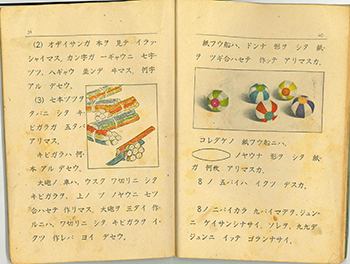 39
(2) オヂイサンガ 本ヲ 見テ イラッ
シャイマス。カン字ガ 一ギャウニ 七字
ヅツ、八ギャウ 並ンデ ヰマス。何字
アル デセウ。
(3) 七本ヅツヲ
タバニ シタ キ
ビガラガ 五タバ
アリマス。
キビガラハ 何
本 アル デセウ。
大砲ノ 車ハ、ウスク ワ切リニ シタ
キビガラヲ、上ノ ヅ ノヤウニ 七ツ
合ハセテ 作リマス。大砲ヲ 三ダイ 作
ルニハ、ワ切リニ シタ キビガラヲ イ
クツ 作レバ ヨイ デセウ。
40
紙フウ船ハ、ドンナ 形ヲ シタ 紙
ヲ ツギ合ハセテ 作ッテ アリマスカ。
コレダケノ 紙フウ船ニハ、
ノヤウナ 形ヲ シタ 紙
ガ 何枚 アリマスカ。
8ノ 五バイハ イクツ デスカ。
8ノ 二バイカラ 九バイマデヲ、ジュン
ニ ケイサンシナサイ。ソレヲ、九九デ
ジュンニ イッテ ゴランナサイ。